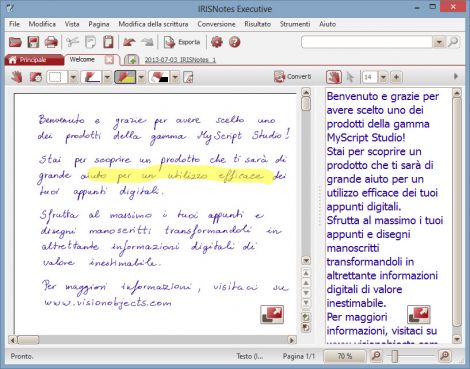 IRISNotes Executive
File Modifica Vista Pagina Modifica della scrittura Conversione Risultato Strumenti Aiuto
Esporta
Principale Welcome 2013-07-03_IRISNotes_1
Converti 14
Benvenuto e grazie per avere scelto uno
dei prodotti della gamma MyScript Studio!
Stai per scoprire un prodotto che ti sarà di
grande aiuto per un utilizzo efficace dei
tuoi appunti digitali.
Sfrutta al massimo i tuoi appunti e
disegni manoscritti transformandoli in
altrettante informazioni digitali di
valore inestimabile.
Per maggiori informazioni, visitaci su
www.visionobjects.com
Benvenuto e grazie per
avere scelto uno dei
prodotti della gamma
MyScript Studio!
Stai per scoprire un
prodotto che ti sarà di
grande aiuto per un
utilizzo efficace dei tuoi
appunti digitali.
Sfrutta al massimo i tuoi
appunti e disegni
manoscritti
transformandoli in
altrettante informazioni
digitali di valore
inestimabile.
Per maggiori
informazioni, visitaci su
www.visionobjects.com
Pronto. Testo (I... Pagina 1/1 70 %